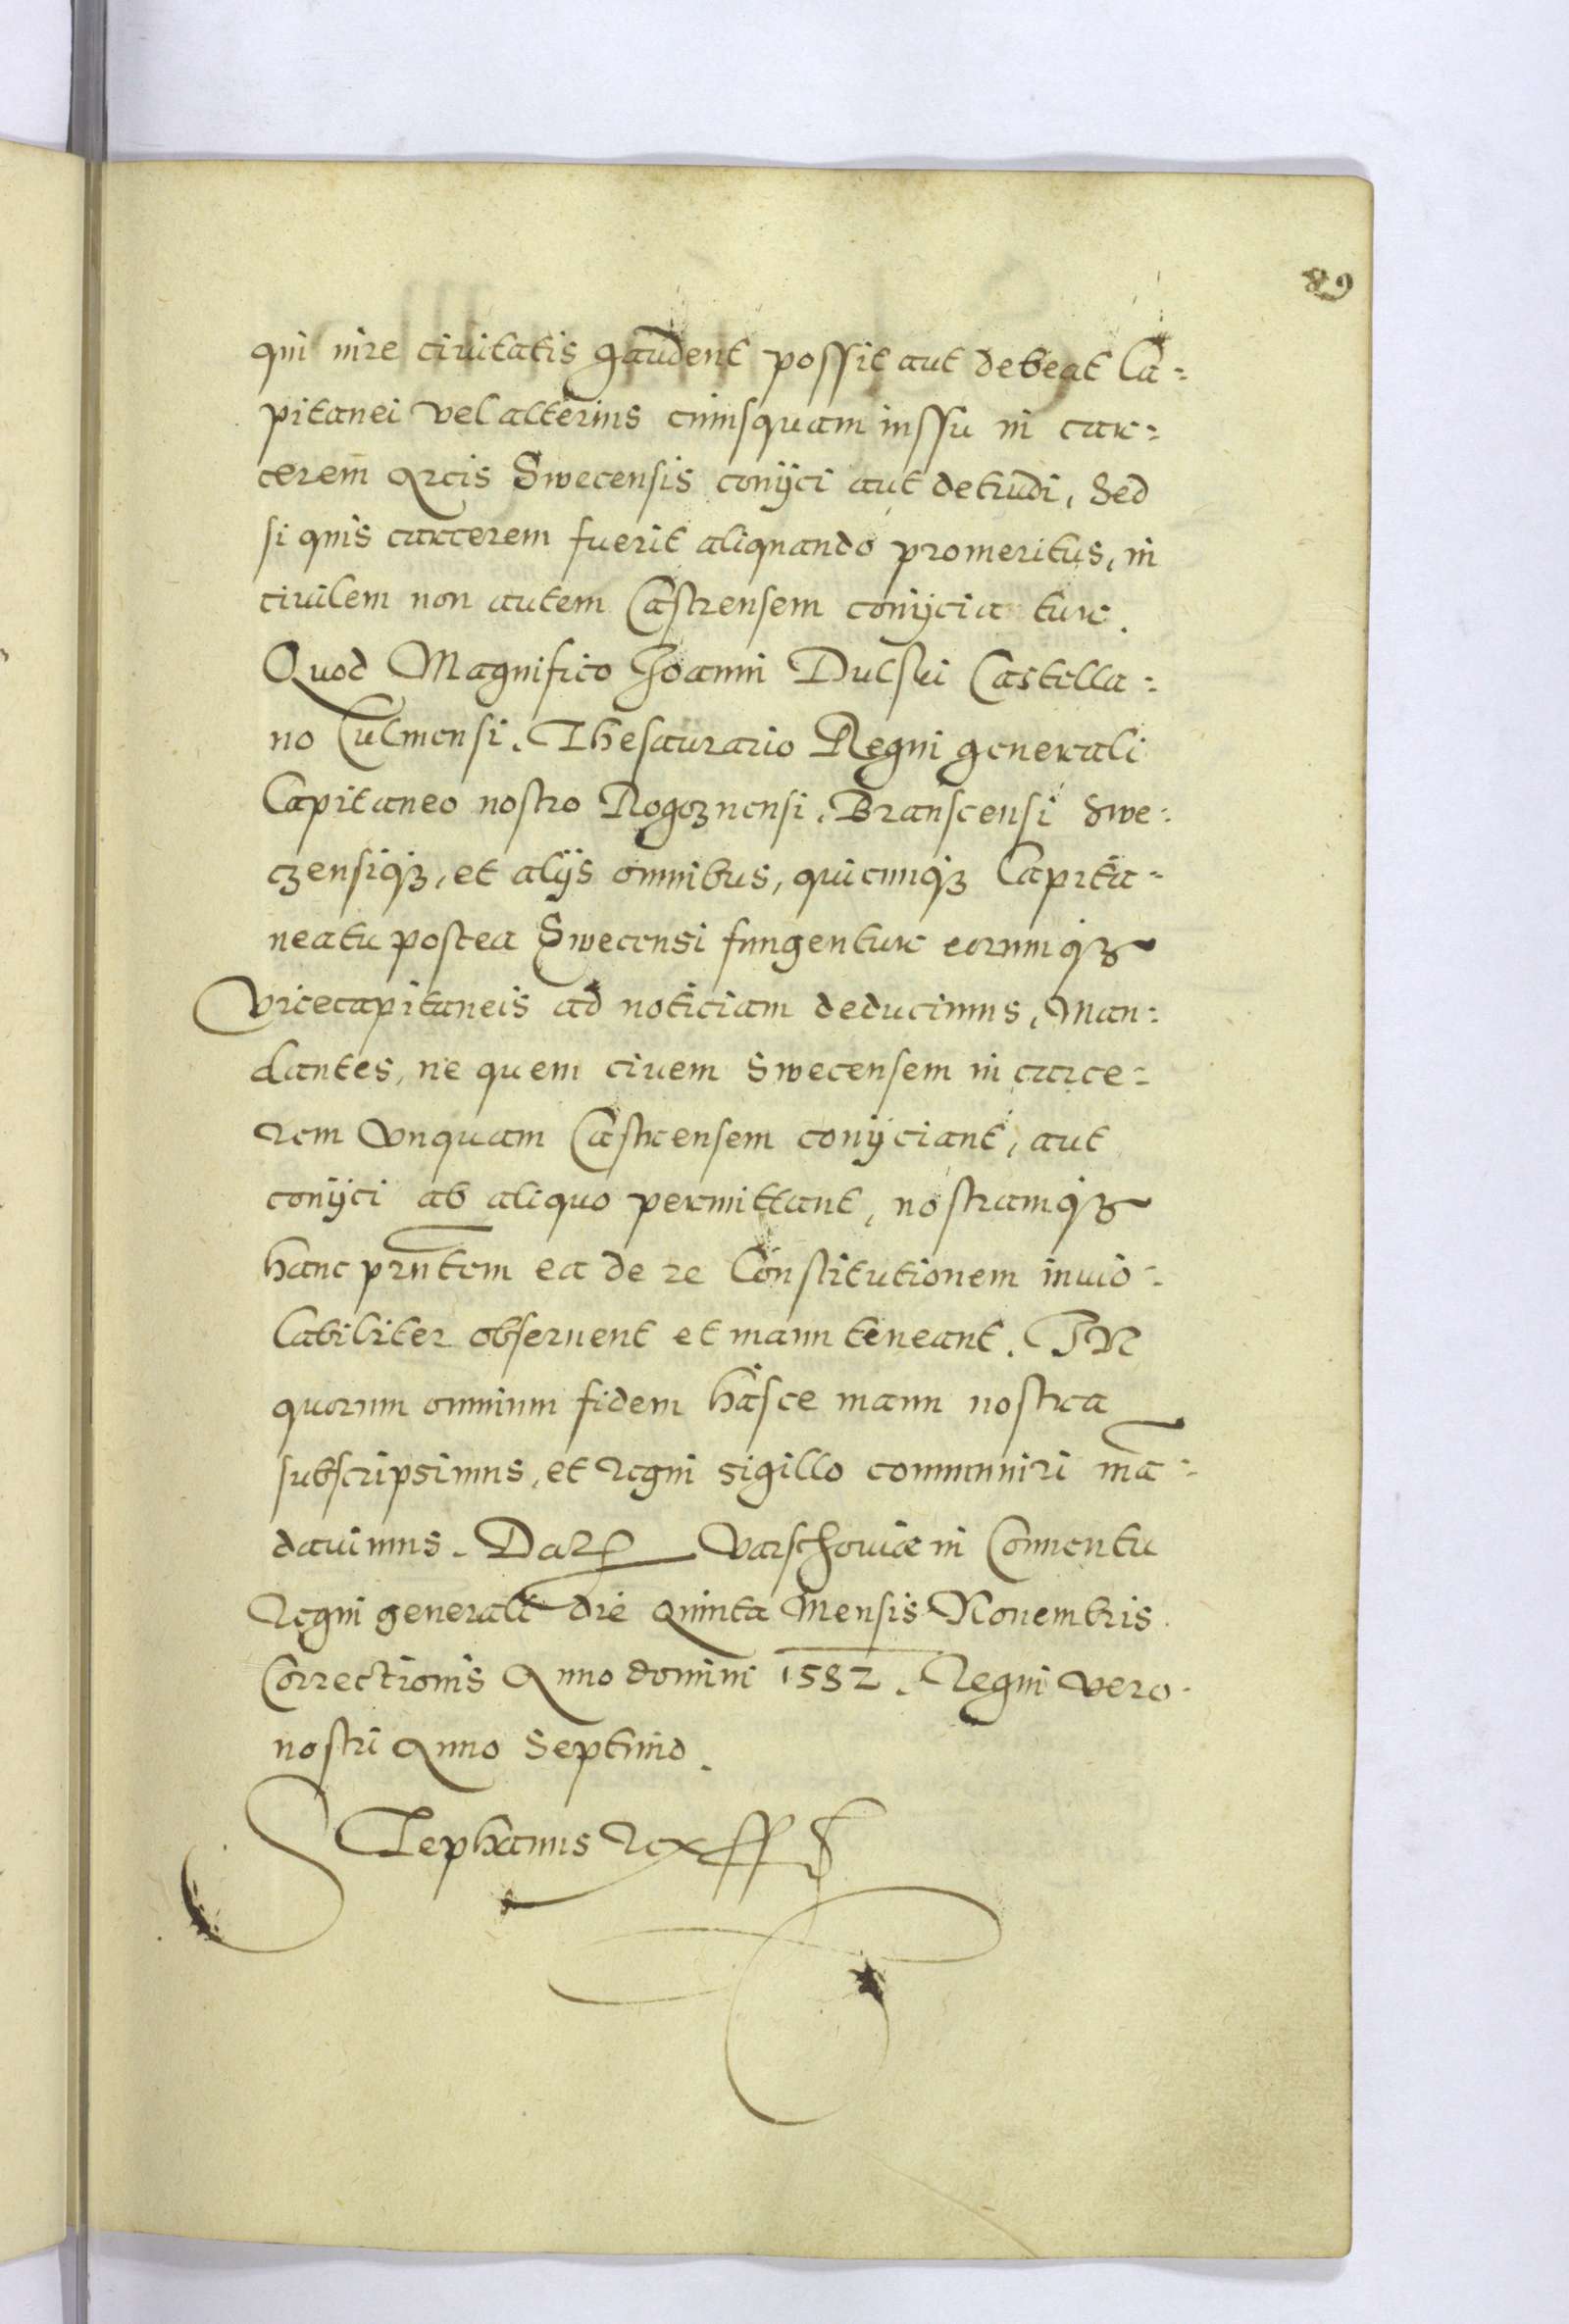 89
qui iure ciuitatis gaudent possit aut debeat Ca=
pitanei vel alterius cuiusquam iussu in car=
cerem Arcis Swecensis conijci aut detrudi, Sed
si quis carcerem fuerit aliquando promeritus, in
ciuilem non autem Castrensem conijcia tur.
Quod Magnifico Joanni Dulski Castella=
no Culmensi. Thesaurario Regni generali
Capitaneo nostro Rogoznensi. Branscensi Swe=
czensiq3, et alijs omnibus, quicunq3 Capita=
neatu postea Swecensi fungentur eorumq3
Vicecapitaneis ad noticiam deducimus, Man=
dantes, ne quem ciuem Swecensem in carce=
rem vnquam Castrensem conijciant, aut
conijci ab aliquo permittant, nostramq3
hanc prntem ea de re Constitutionem inuio=
labiliter obseruent et manu teneant. IN
quorum omnium fidem hasce manu nostra
subscripsimus, et Regni sigillo communiri mā=
dauimus. Dat. Varschouiæ in Conuentu
Regni generali die quinta Mensis Nouembris
Correctionis Anno domini 1582. Regni vero
nostri Anno Septimo.
Stephanus Rex sst